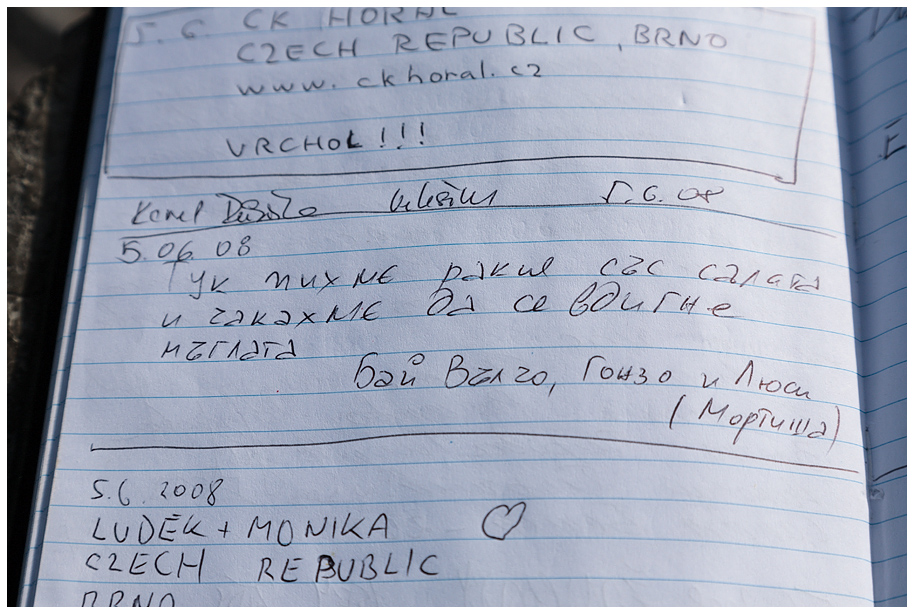 5. 6. CK HORAL
CZECH REPUBLIC, BRNO
www.ckhoral.cz
VRCHOL!!!
Karel 5.6.08
5.06.08
Тук пихме ракия със салата
и чакахме да се вдигне
мъглата
бай Вълчо, Гонзо и Люси
(Мортиша)
5.6.2008
LUDĚK + MONIKA
CZECH REPUBLIC
BRNO